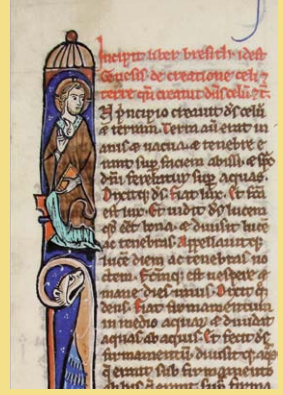 Incipit liber bresith idest
Genesis de creatione celi ⁊
terre qn̄ creauit dn̄s celū ⁊c.
In pncipio creauit ds celū
⁊ terram. Terra aū erat in
anis ⁊ uacua. ⁊ tenebre e
rant sup faciem abissi. ⁊ sps
dni ferebatur sup aquas.
Dixitq; ds. fiat lux. Et fcā
est lux. Et uidit ds lucem
qd eēt bona. ⁊ diuisit lucē
ac tenebras. Appellauitq;
lucē diem ac tenebras no
ctem. Fcm̄q; est uespere ⁊
mane dies unus. Dixit q
deus. Fiat firmamentum
in medio aquar ⁊ diuidat
aquas ab aquis. Et fecit ds
firmamentū. diuisitq; aqs
q erant sub firmamento
ab his q erant sup firma